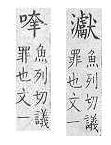 𤅊
魚列切議
罪也文一
魚列切議
罪也文一